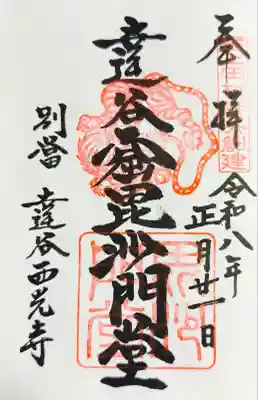 奉拝
令和八年
正月廿一日
達谷窟毘沙門堂
別當 達谷西光寺